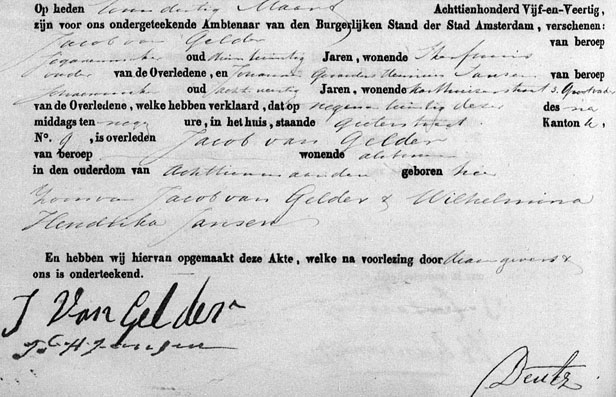 Op heden Maart Achttienhonderd Vijf-en-Veertig,
zijn voor ons ondergeteekende Ambtenaar van den Burgerlijken Stand der Stad Amsterdam, verschenen:
Jacob van Gelder van beroep
oud Jaren, wonende
vader van de Overledene, en Jansen van beroep
oud Acht veertig Jaren, wonende Karthuizerstraat Grootvader
van de Overledene, welke hebben verklaard, dat op negen twintig dezer des na
middags ten negen ure, in het huis, staande Gietersstraat Kanton
N°. 9, is overleden Jacob van Gelder
van beroep wonende aldaar
in den ouderdom van Achttien maanden geboren hier
Zoon van Jacob van Gelder & Wilhelmina
Hendrika Jansen
En hebben wij hiervan opgemaakt deze Akte, welke na voorlezing door &
ons is onderteekend.
J Van Gelder
Jansen
Deutz